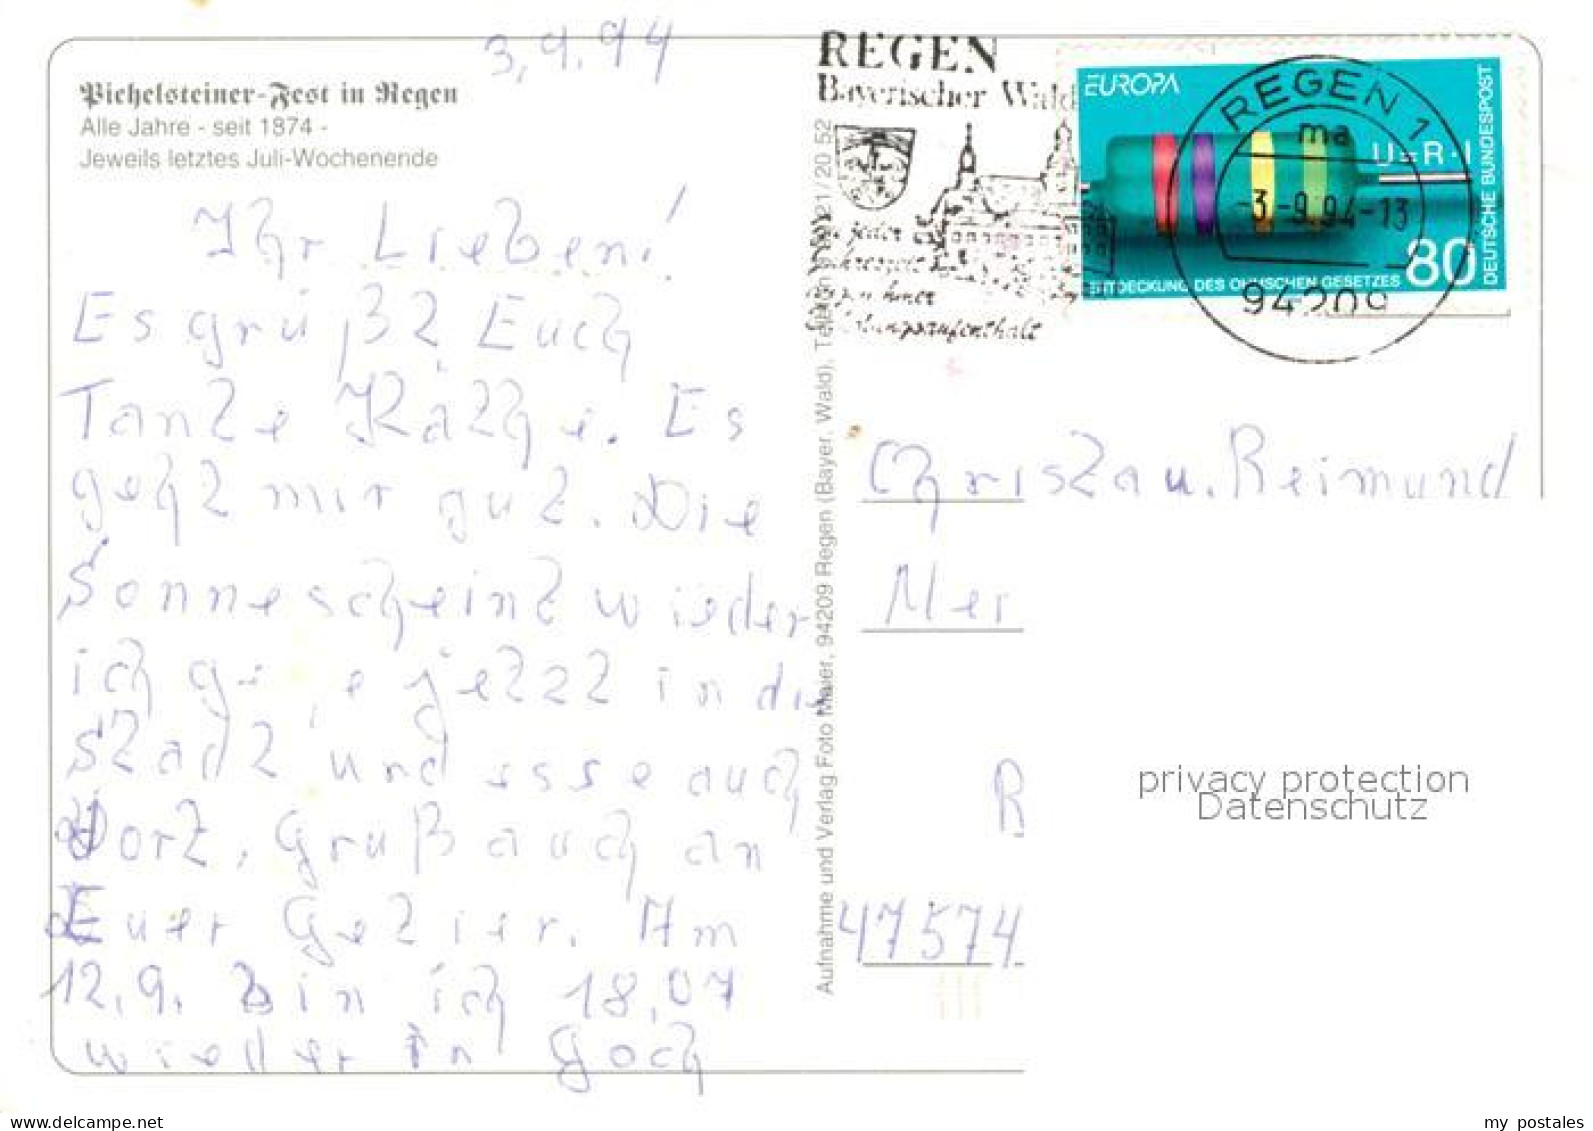 3.9.94
Pichelsteiner-Fest in Regen
Alle Jahre - seit 1874 -
Jeweils letztes Juli-Wochenende
Ihr Lieben!
Es grüßt Euch
Tante Käthe. Es
geht mir gut. Die
Sonne scheint wieder
ich gehe jetzt in die
Stadt und esse auch
Dort. Gruß auch an
Euer Getier. Am
12.9. bin ich 18.07
wieder in Goch
Aufnahme und Verlag Foto Maier, 94209 Regen (Bayer. Wald), 21/20 52
REGEN
Bayerischer Wald
zu jeder
EUROPA
U=R·I
ENTDECKUNG DES OHMSCHEN GESETZES
80
DEUTSCHE BUNDESPOST
REGEN 1
ma
-3.-9.94-13
94209
Christa u. Reimund
Mer
R
47574
privacy protection
Datenschutz
delcampe.net
my_postales